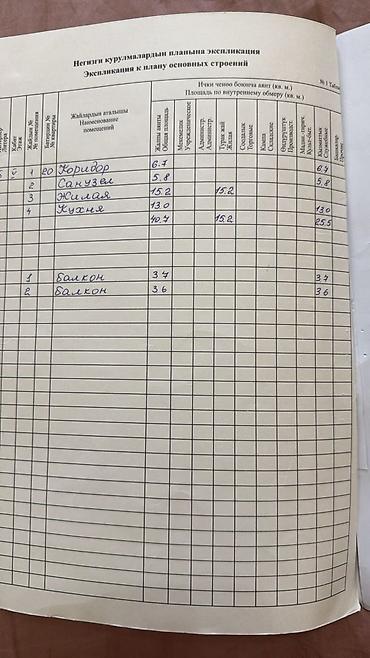 Негизги курулмалардын планына экспликация
Экспликация к плану основных строений
№ 1 Табли
Ички ченөө боюнча аянт (кв. м.)
Площадь по внутреннему обмеру (кв. м.)
Литера
Кабат
Этаж
Жайдын №
№ помещения
Батирдин №
№ квартиры
Жайлардын аталышы
Наименование
помещений
Жалпы аянты
Общая площадь
Мекемелик
Учрежденческие
Администр.
Админист.
Турак жай
Жилая
Соодалык
Торговые
Кампа
Складские
Өндүрүштүк
Производст.
Мадан.-тирич.
Культ-быт.
Кызматтык
Служебные
Башкалар
Прочие
5 1 20 Коридор 6.7 6.7
2 Санузел 5.8 5.8
3 Жилая 15.2 15.2
4 Кухня 13.0 13.0
40.7 15.2 25.5
1 балкон 3.7 3.7
2 балкон 3.6 3.6